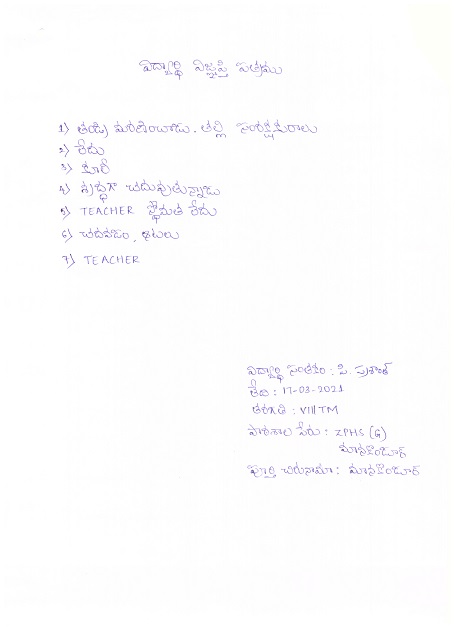 విద్యార్థి విజ్ఞప్తి పత్రము
1) తండ్రి మరణించాడు. తల్లి సంరక్షకురాలు
2) లేదు
3) కూలీ
4) శ్రద్ధగా చదువుతున్నాడు
5) TEACHER స్థోమత లేదు
6) చదవడం, ఆటలు
7) TEACHER
విద్యార్థి సంతకం : పి. ప్రశాంత్
తేది : 17-03-2021
తరగతి : VIII TM
పాఠశాల పేరు : ZPHS (G)
మానకొండూర్
పూర్తి చిరునామా : మానకొండూర్